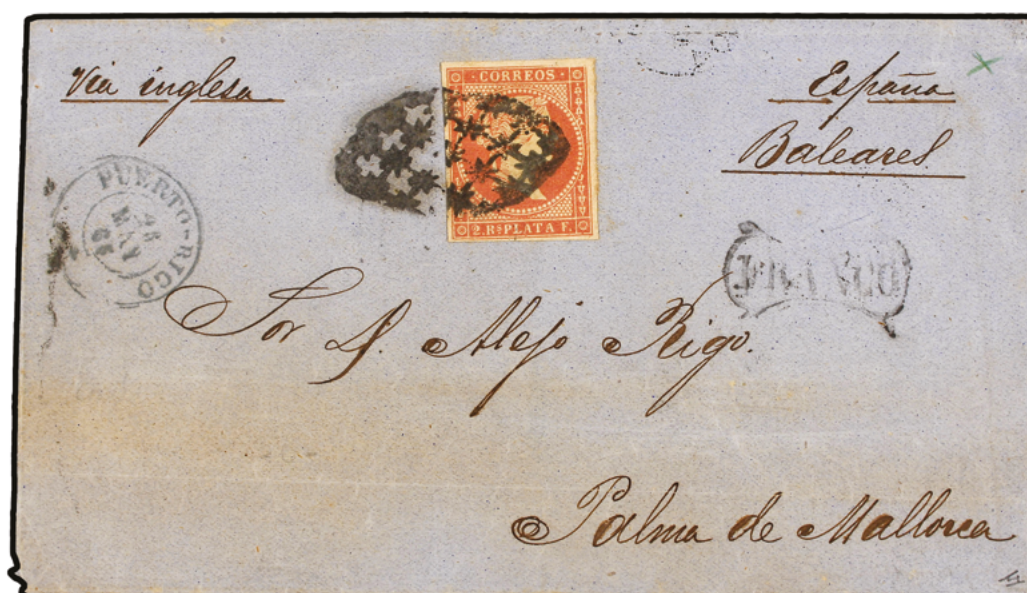 Via inglesa
CORREOS
2.Rs PLATA F.
España
Baleares
PUERTO-RICO
MAY
FRANCO
Sor D. Alejo Rigo.
Palma de Mallorca